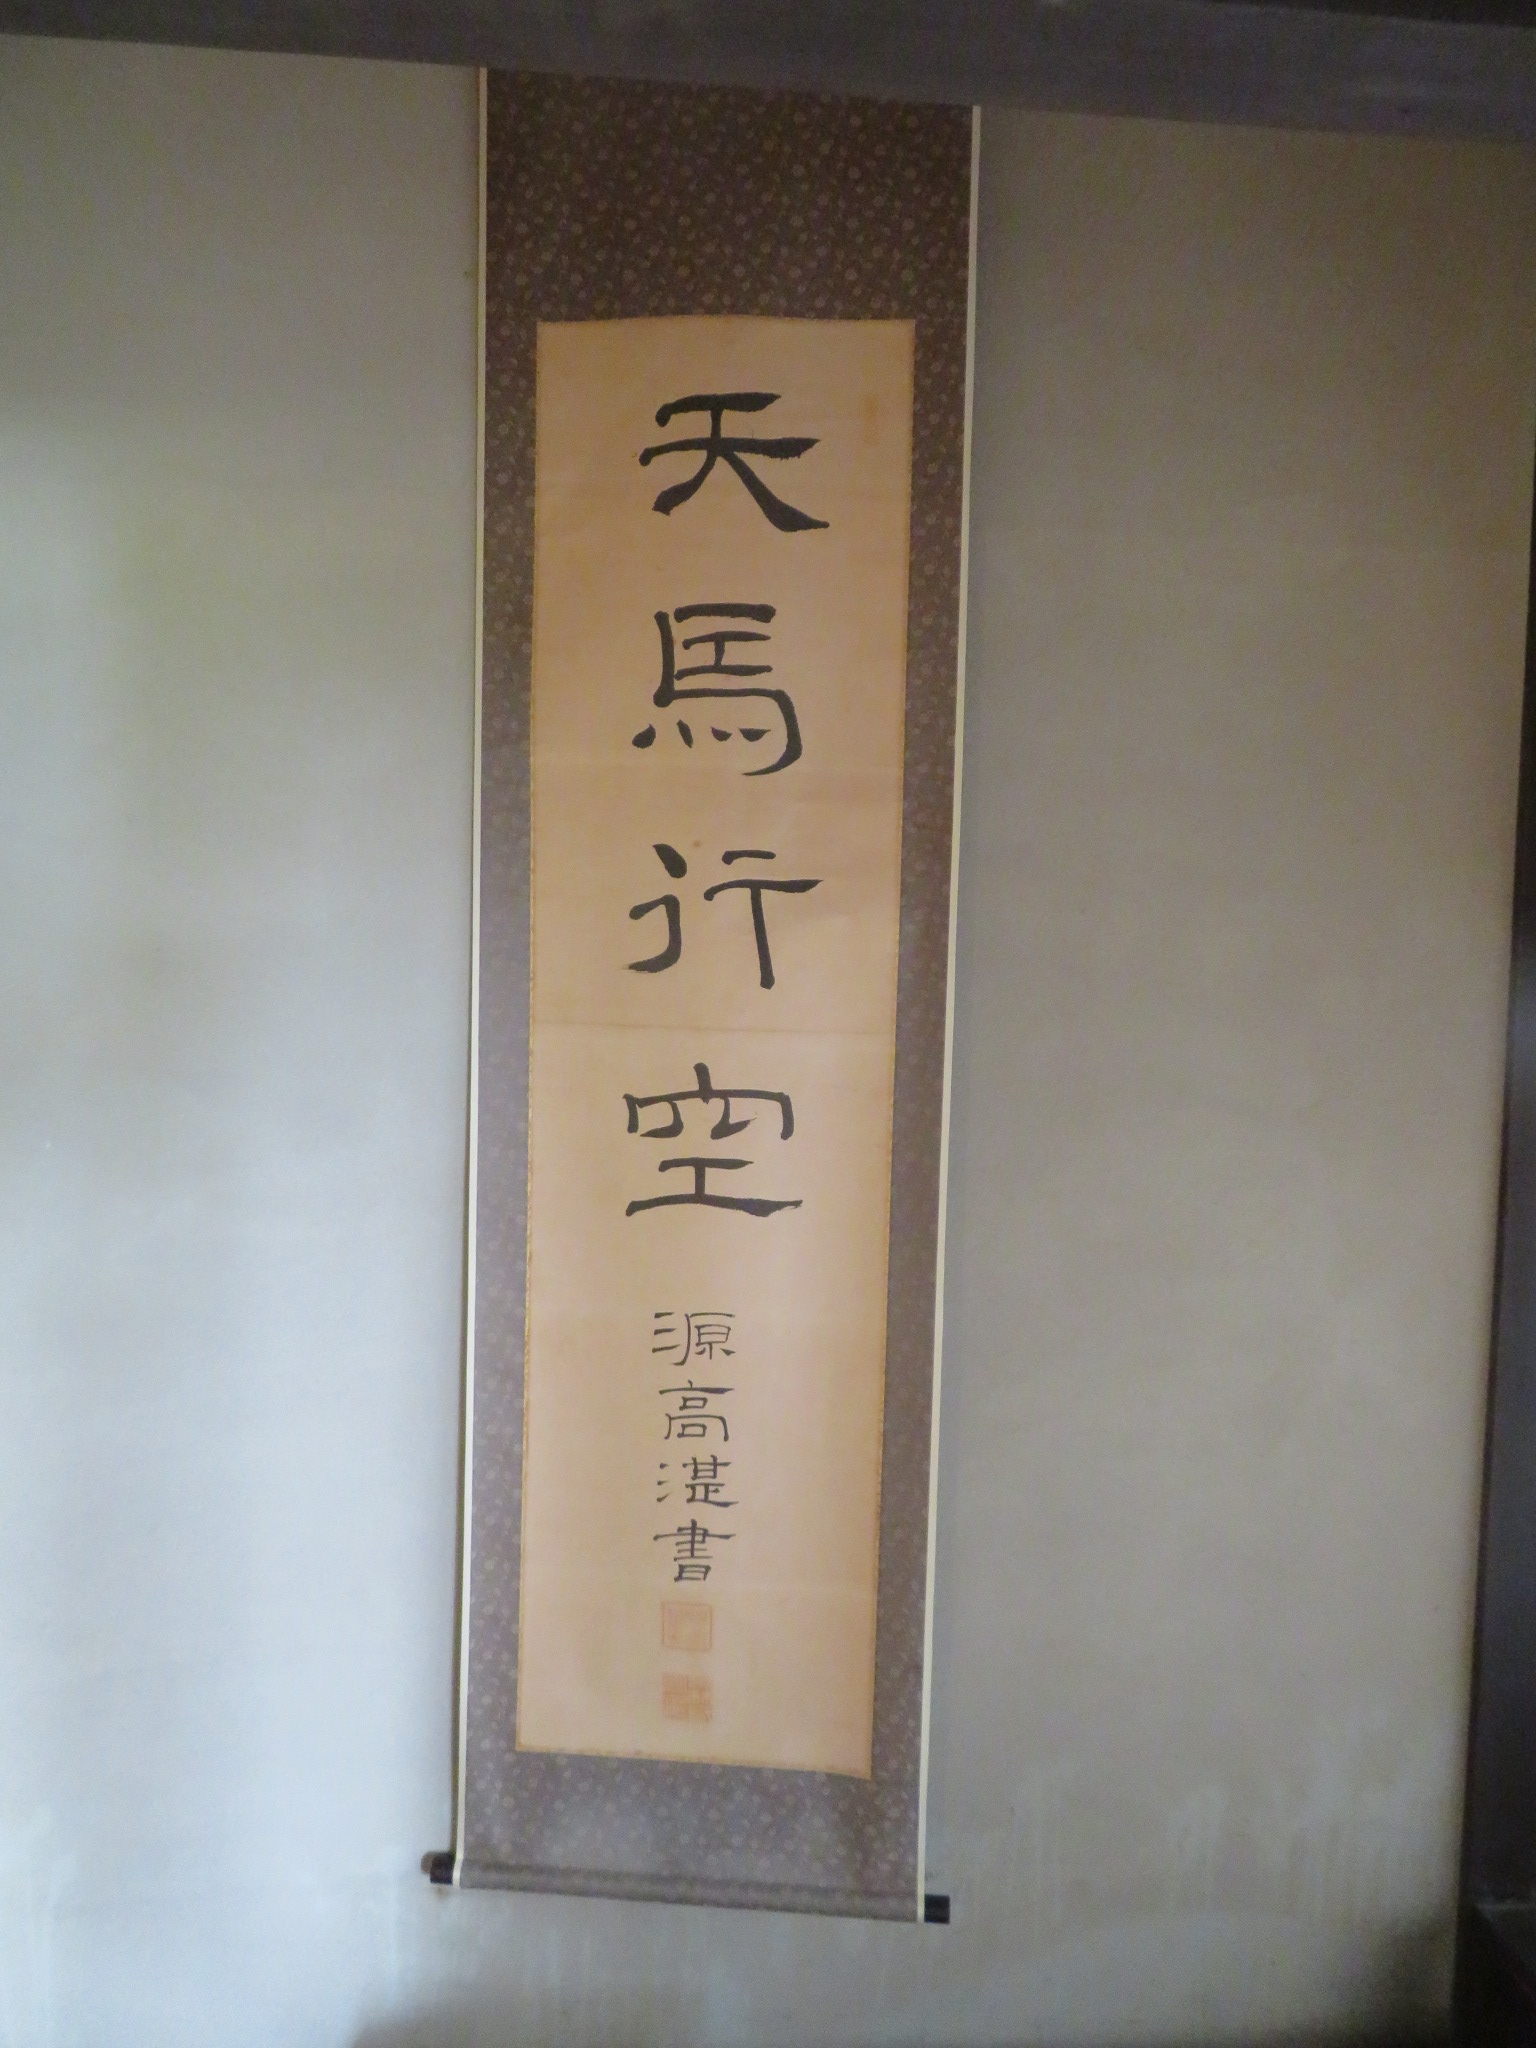 天馬行空
源高湛書